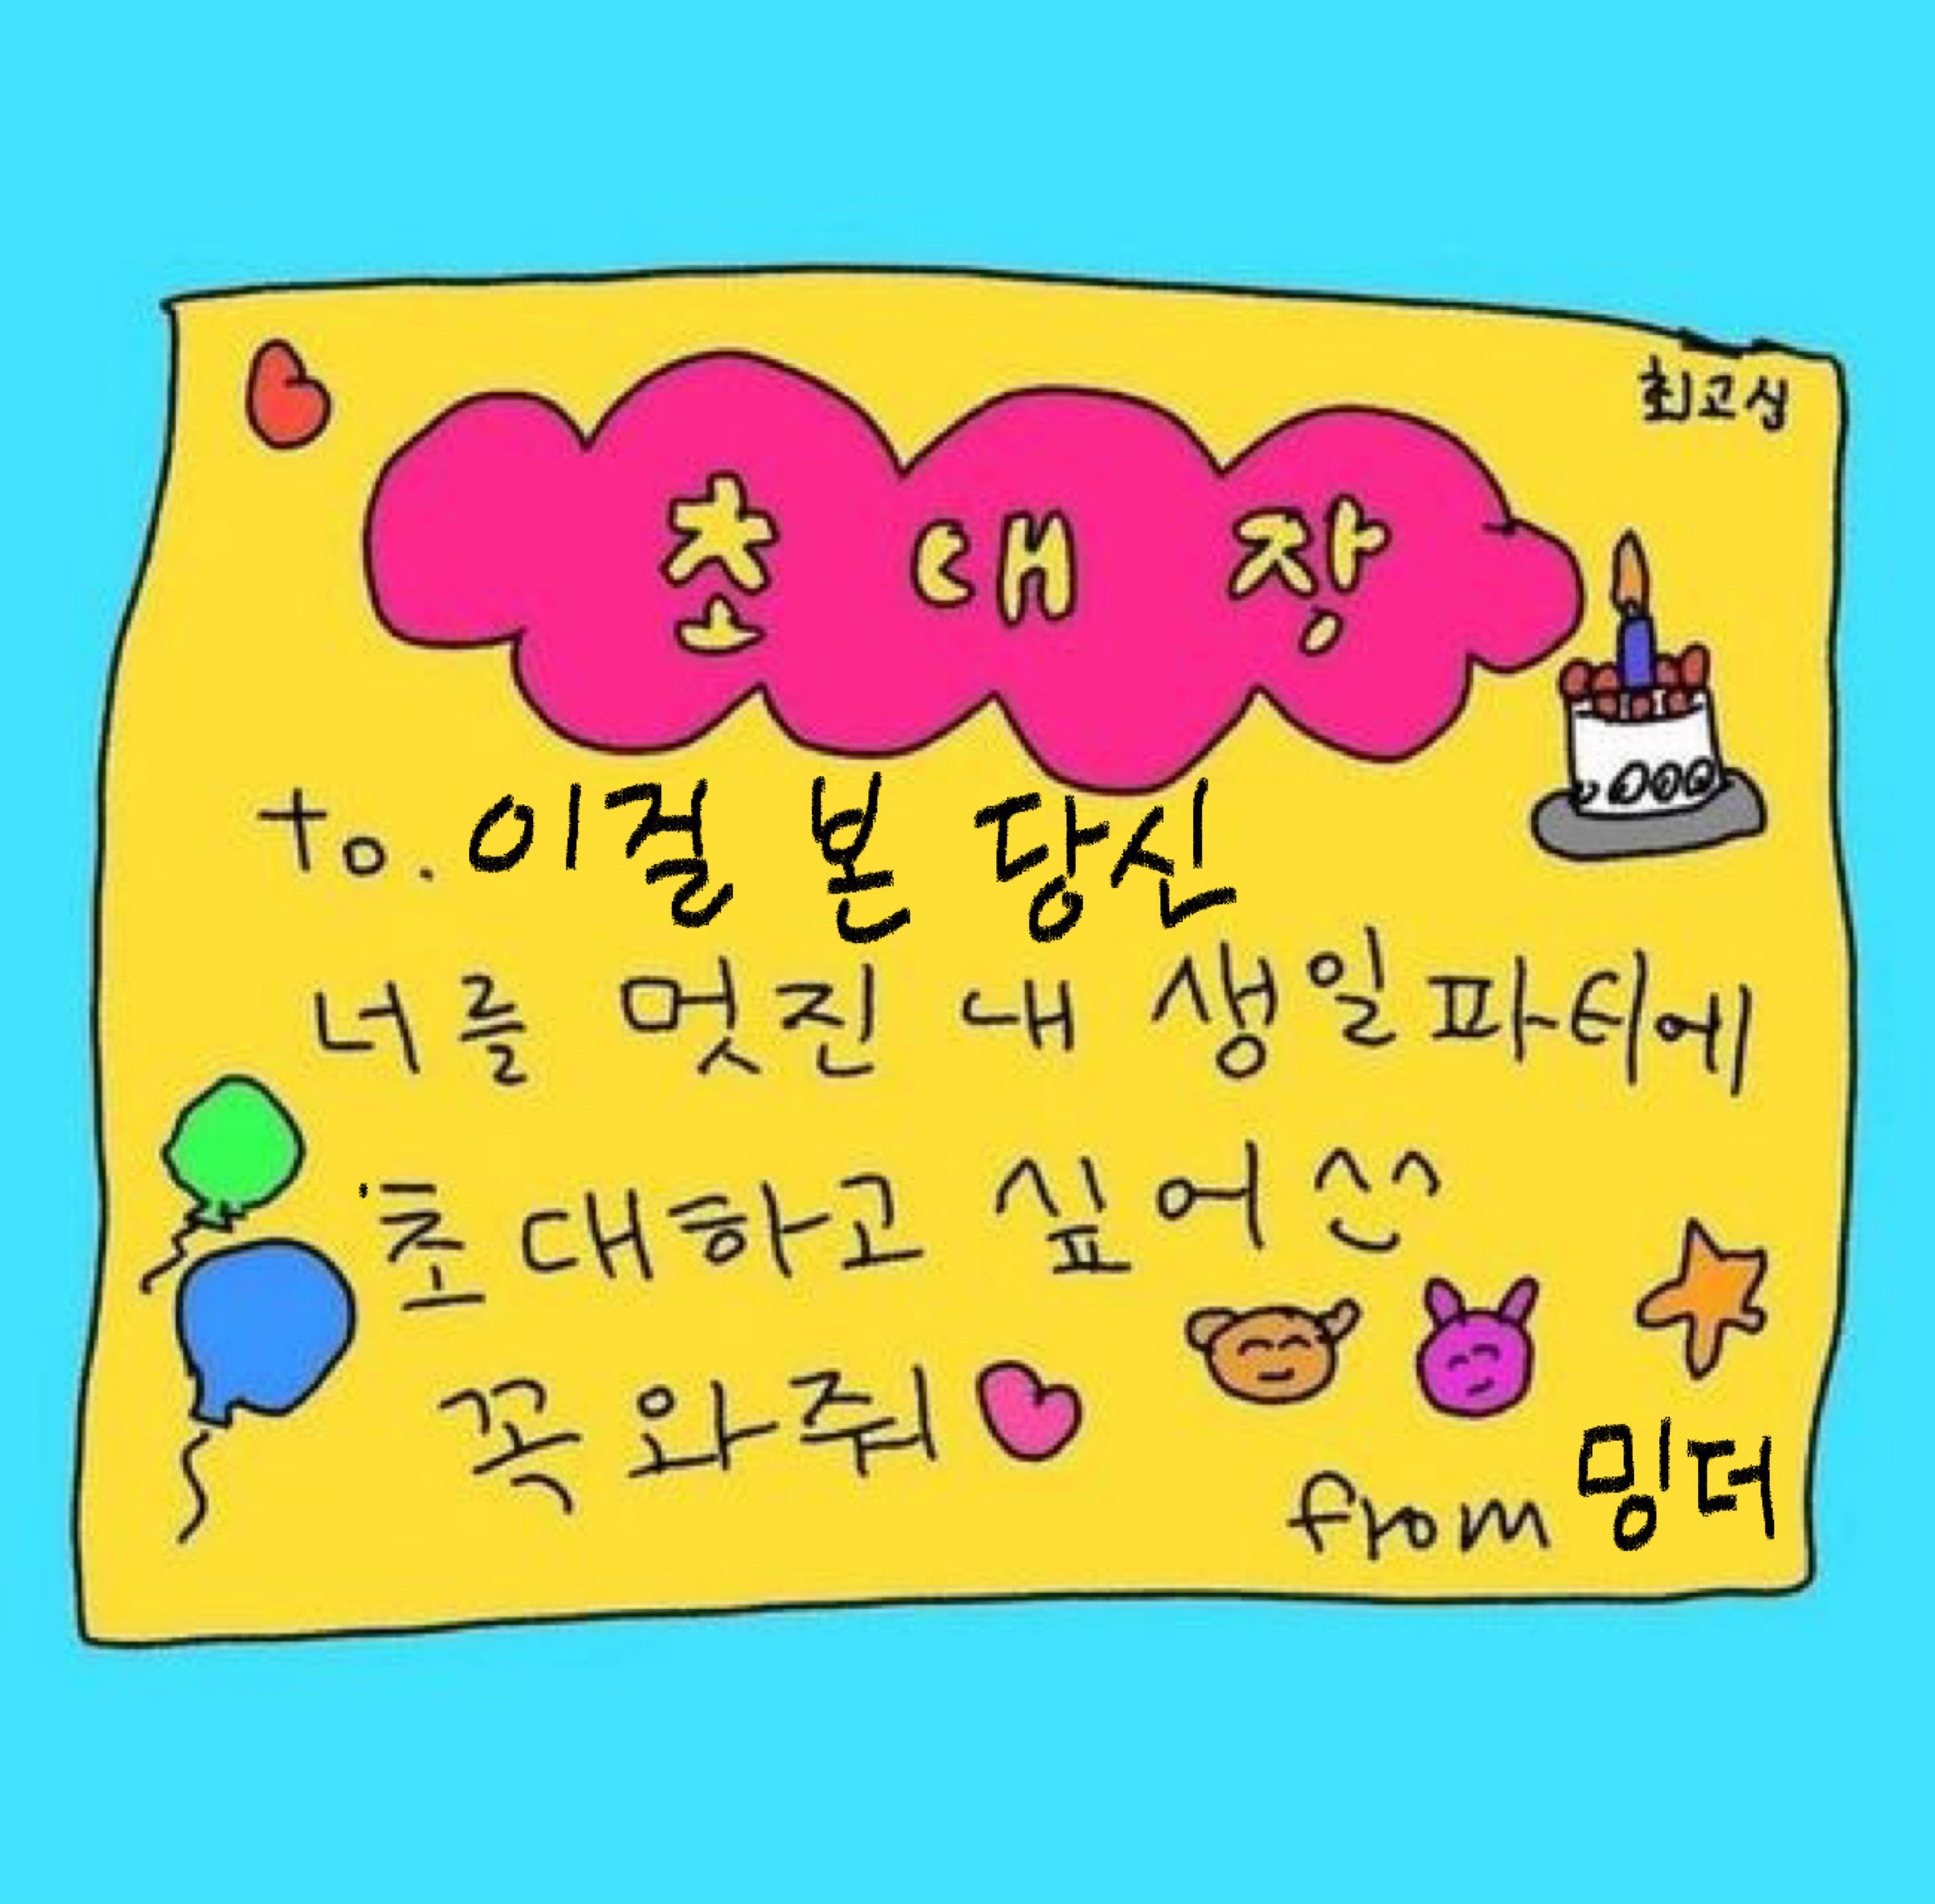 최고심
초대장
to. 이걸 본 당신
너를 멋진 내 생일파티에
초대하고 싶어^^
꼭 와줘
from 밍더